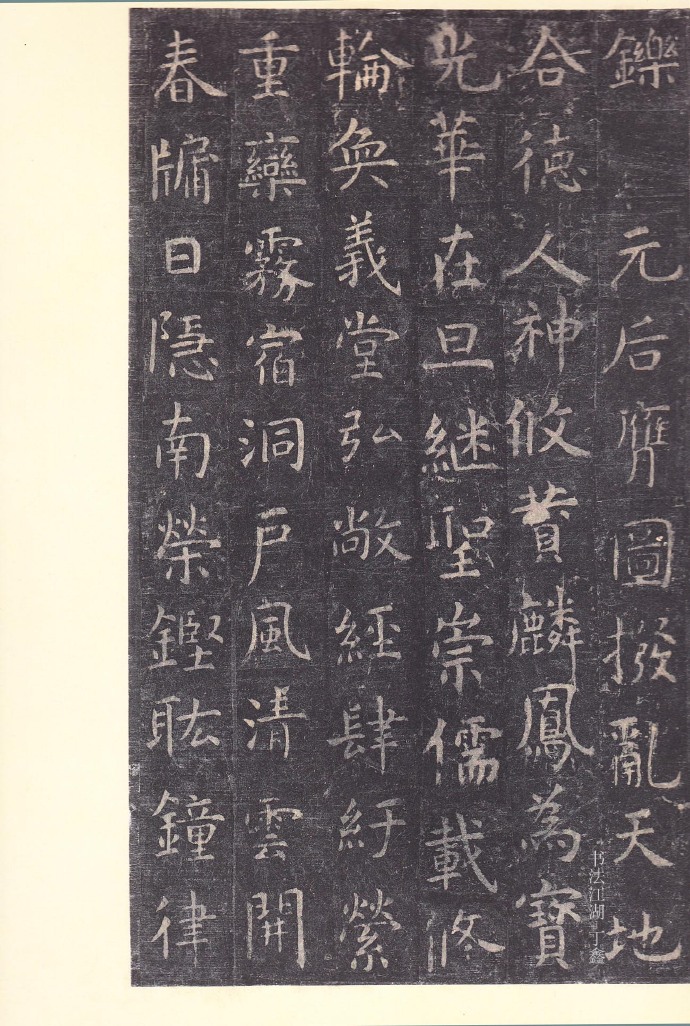 鑠 元后膺圖撥亂天地
合德人神攸贊麟鳳為寳
光華在旦継聖崇儒載修
輪奐義堂弘敞經肆紆縈
重欒霧宿洞戸風清雲開
春牖日隱南榮鏗耾鐘律
书法江湖 丁鑫